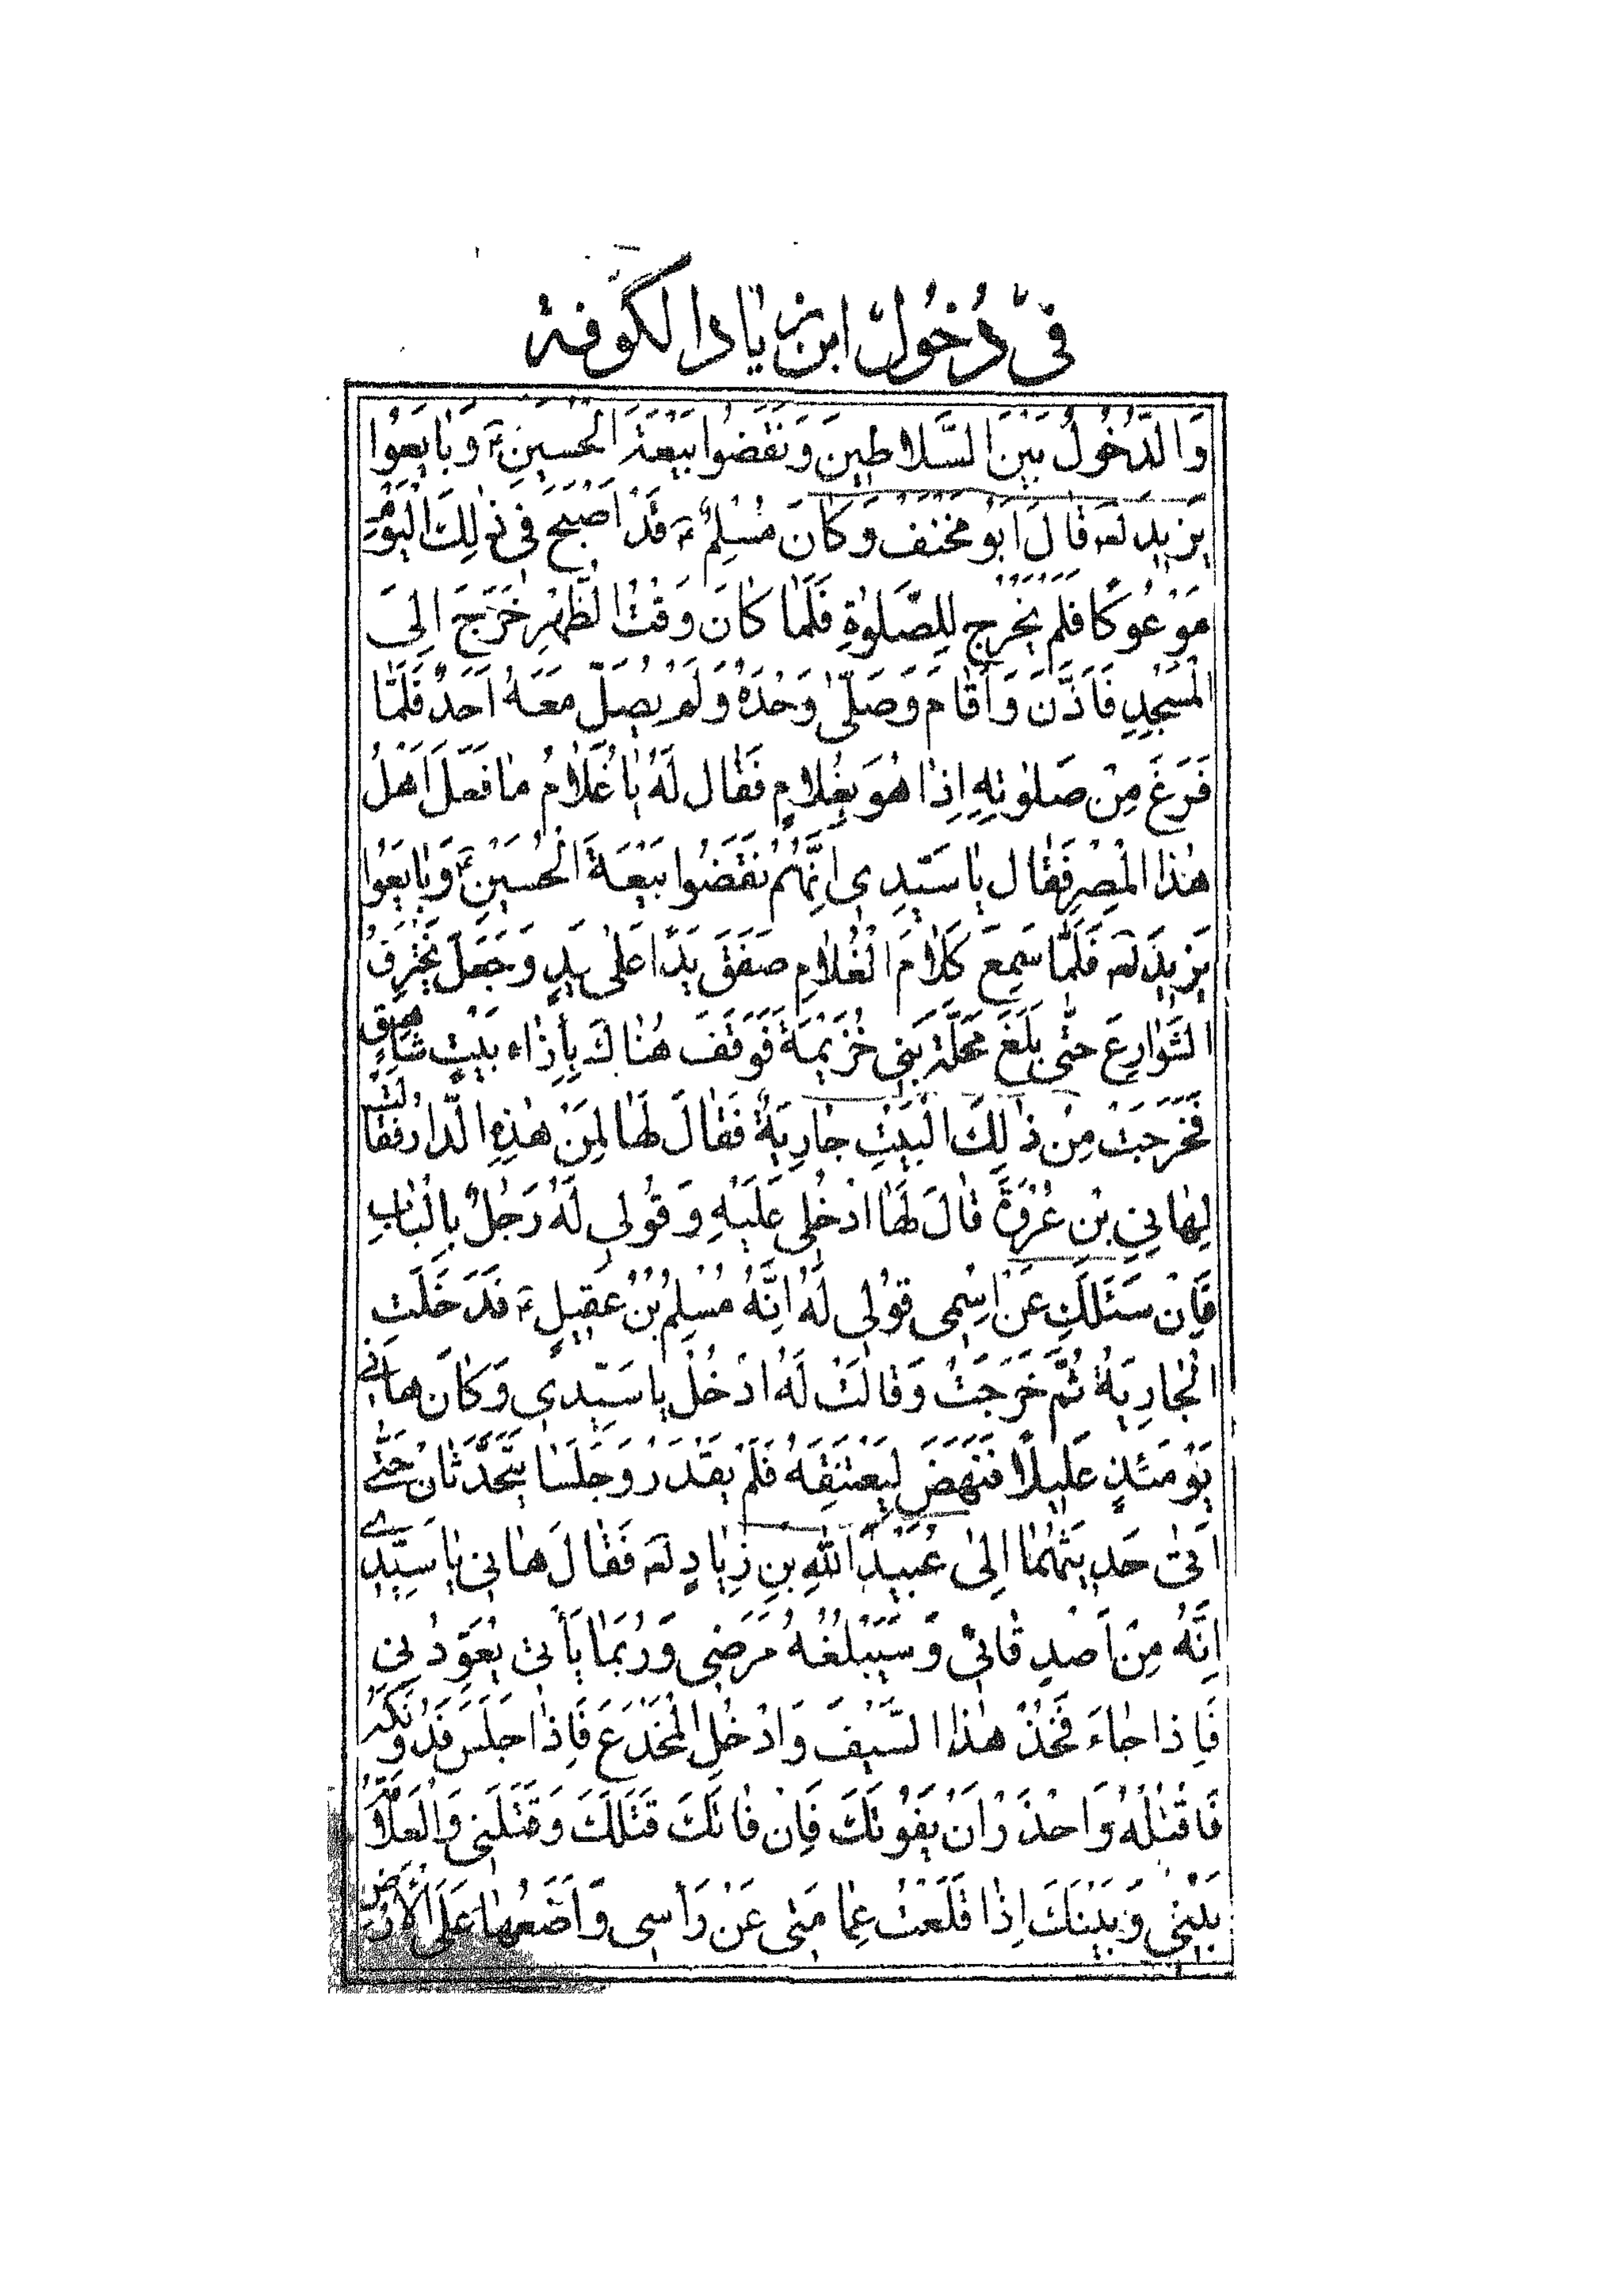 في دُخُول ابن زياد الكوفة
وَالدُّخُولُ بَيْنَ السَّلاطِينَ وَنَقَضُوا بَيْعَةَ الحُسَيْنِ ع وَبايَعُوا
يَزيدَ لعه قالَ اَبُو مخنَف وَكانَ مُسْلِمٌ ع قَدْ اَصْبَحَ في ذٰلِكَ الْيَوْمِ
مَوْعُوكًا فلم يَخْرُجْ لِلصَّلوٰةِ فَلَمّا كانَ وَقْتُ الظُّهْرِ خَرَجَ اِلَى
الْمَسْجِدِ فَاَذَّنَ وَاَقامَ وَصَلّىٰ وَحْدَهُ وَلَمْ يُصَلِّ مَعَهُ اَحَدٌ فَلَمّا
فَرَغَ مِنْ صَلوٰتِهِ اِذا هُوَ بِغُلامٍ فَقال لَهُ يا غُلامُ ما فَعَلَ اَهْلُ
هٰذَا الْمِصْرِ فَقال يا سَيِّدي اِنَّهُمْ نَقَضُوا بَيْعَةَ الْحُسَيْنِ ع وَبايَعُوا
يَزيدَ لعه فَلَمّا سَمِعَ كَلامَ الْغُلامِ صَفَقَ يَدًا عَلىٰ يَدٍ وَجَعَلَ يَخْتَرِقُ
الشَّوارِعَ حَتّى بَلَغَ مَحَلَّةَ بَني خُزَيْمَةَ فَوَقَفَ هُناكَ بِاِذاءِ بَيْتٍ شاهِقٍ
فَخَرَجَتْ مِنْ ذٰلِكَ الْبَيْتِ جارِيَةٌ فَقالَ لَها لِمَنْ هٰذِهِ الدّار فَقالَتْ
لِهاني بْنِ عُرْوَةَ قالَ لَها ادْخُلي عَلَيْهِ وَقُولي لَهُ رَجُلٌ بِالْبابِ
فَاِنْ سَئَلَكِ عَنْ اِسْمي قُولي لَهُ اِنَّهُ مُسْلِمُ بْنُ عَقيلٍ ع فَدَخَلَتِ
الْجارِيَةُ ثُمَّ خَرَجَتْ وَقالَتْ لَهُ ادْخُلْ يا سَيِّدي وَكانَ هاني
يَوْمَئِذٍ عَليلًا فَنَهَضَ لِيَعْتَنِقَهُ فَلَمْ يَقْدَرْ وَجَلَسا يَتَحَدَّثانْ حَتّى
اَتىٰ حَديثَهُما اِلىٰ عُبَيْدِ اللهِ بنِ زِيادٍ لعه فَقالَ هاني يا سَيِّدي
اِنَّهُ مِنْ اَصْدِقائي وَسَيَبْلُغُهُ مَرَضي وَرُبَما يَأْتي يُعَوِّدُني
فَاِذا جاءَ فَخُذْ هٰذَا السَّيْفَ وَادْخُلِ الْمُخْدَعَ فَاِذا جَلَسَ فَدُونَكَهُ
فَاقْتُلْهُ وَاحْذَرْ اَنْ يَفُوتَكَ فَاِنْ فاتَكَ قَتَلَكَ وَقَتَلَني وَالْعَلامَةُ
بَيْني وَبَيْنَكَ اِذا قَلَعْتُ عِمامَتي عَنْ رَأسي وَاَضَعُها عَلَى الْاَرْضِ